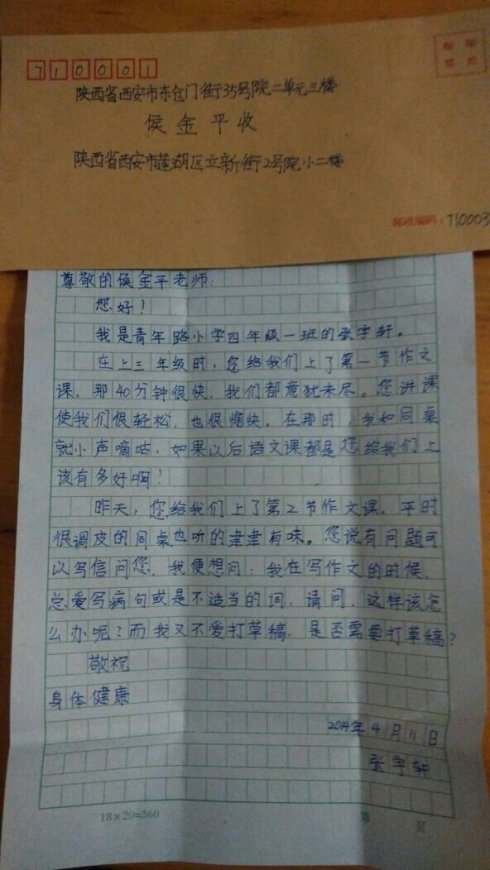 710001
陕西省西安市东仓门街35号院二单元三楼
侯金平收
陕西省西安市莲湖区立新街2号院小二楼
邮政编码：710003
尊敬的侯金平老师：
您好！
我是青年路小学四年级一班的张宇轩。
在上三年级时，您给我们上了第一节作文
课，那40分钟很快，我们都意犹未尽。您讲课
使我们很轻松，也很愉快。在那时，我和同桌
就小声嘀咕，如果以后语文课都是您给我们上
该有多好啊！
昨天，您给我们上了第2节作文课。平时
很调皮的同桌也听的津津有味。您说有问题可
以写信问您，我便想问：我在写作文的时候，
总爱写病句或是不适当的词，请问，这样该怎
么办呢？而我又不爱打草稿，是否需要打草稿？
敬祝
身体健康
2014年4月11日
张宇轩
18×20=360
第 页